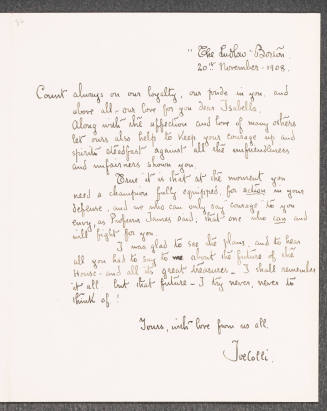 "The Ludlow - Boston
20th November - 1908.
Count always on our loyalty, our pride in you, and
above all - our love for you dear Isabella.
Along with the affection and love of many others
let ours also help to keep your courage up and
spirit steadfast against all the unfriendliness
and unfairness shown you.
True it is that at the moment you
need a champion fully equipped, for action in your
defense, and we who can only say "courage" to you
envy, as Professor James said, that one who can and
will fight for you.
I was glad to see the plans, and to hear
all you had to say to me about the future of the
House - and all its great treasures - I shall remember
it all but that future - I try never, never to
think of!
Yours, with love from us all.